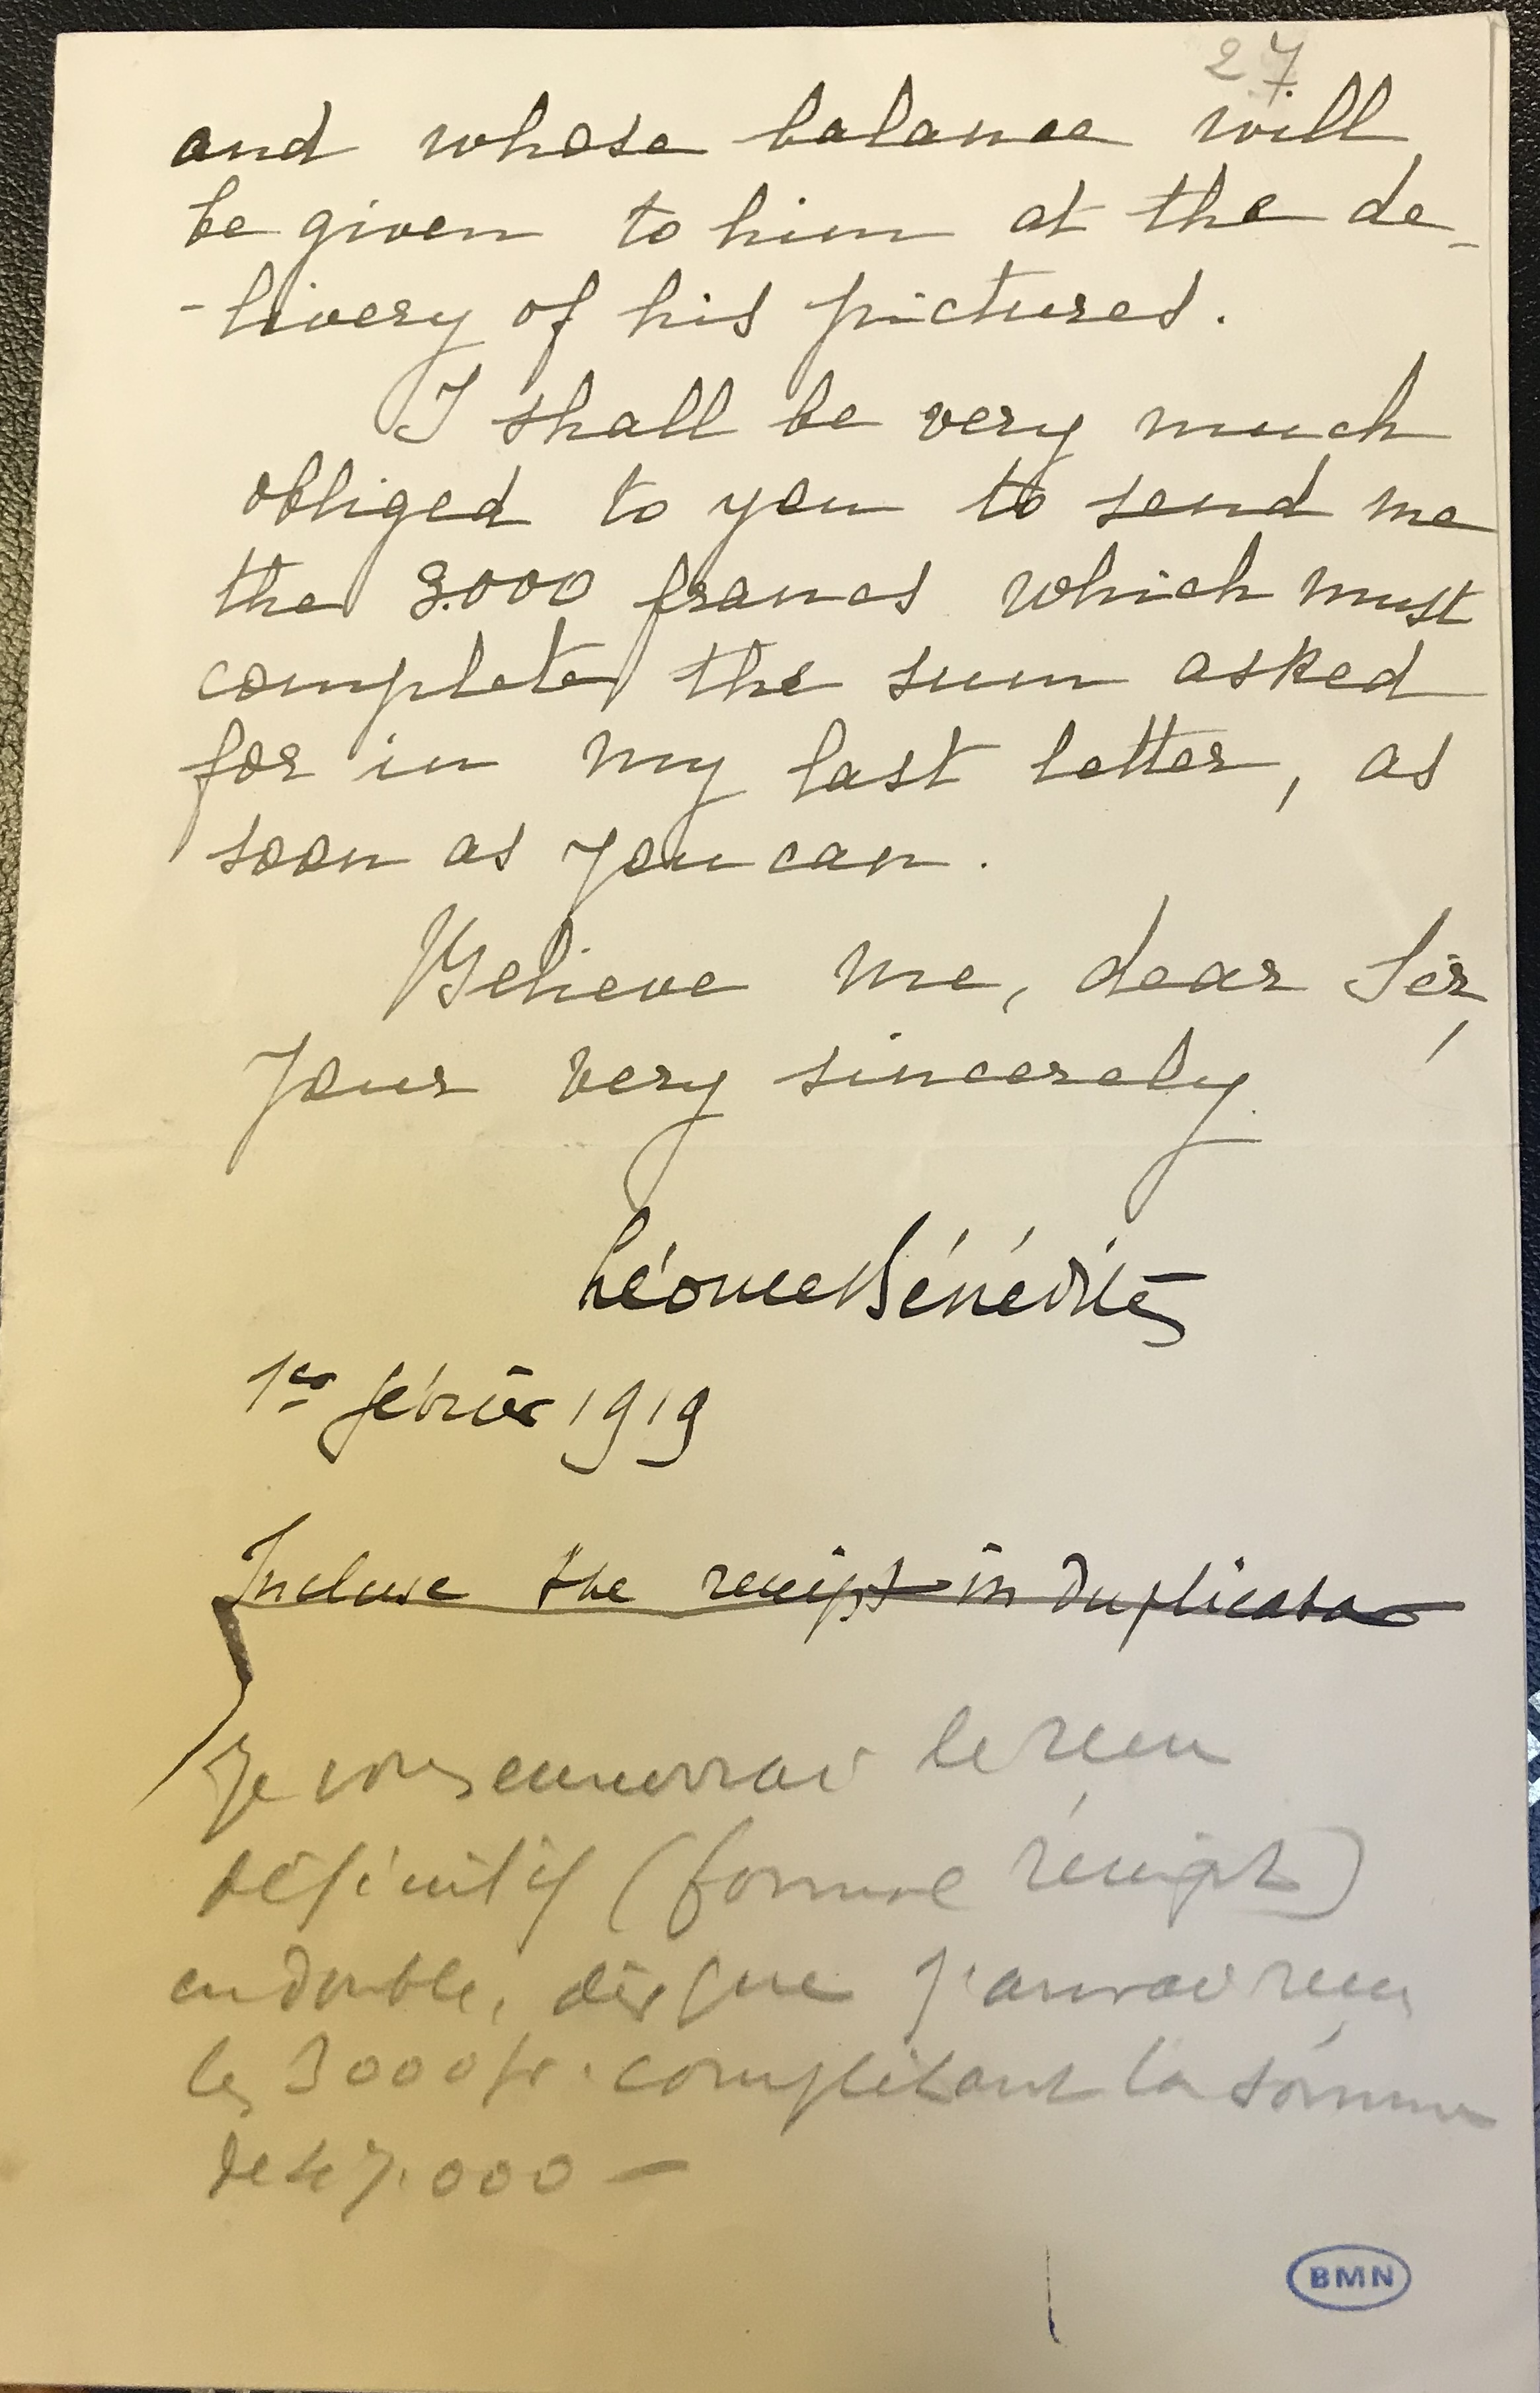 27
and whose balance will
be given to him at the de-
-livery of his pictures.
I shall be very much
obliged to you to send me
the 3.000 francs which must
complete the sum asked
for in my last letter, as
soon as you can.
Believe me, dear Sir,
Your very sincerely
Léonce Bénédite
1er février 1919
Incluse the receipt in duplicata
Je vous enverrai le reçu
définitif (formule receipt)
en double, dès que j'aurai reçu
les 3000 fr. complétant la somme
de 47.000 —
BMN